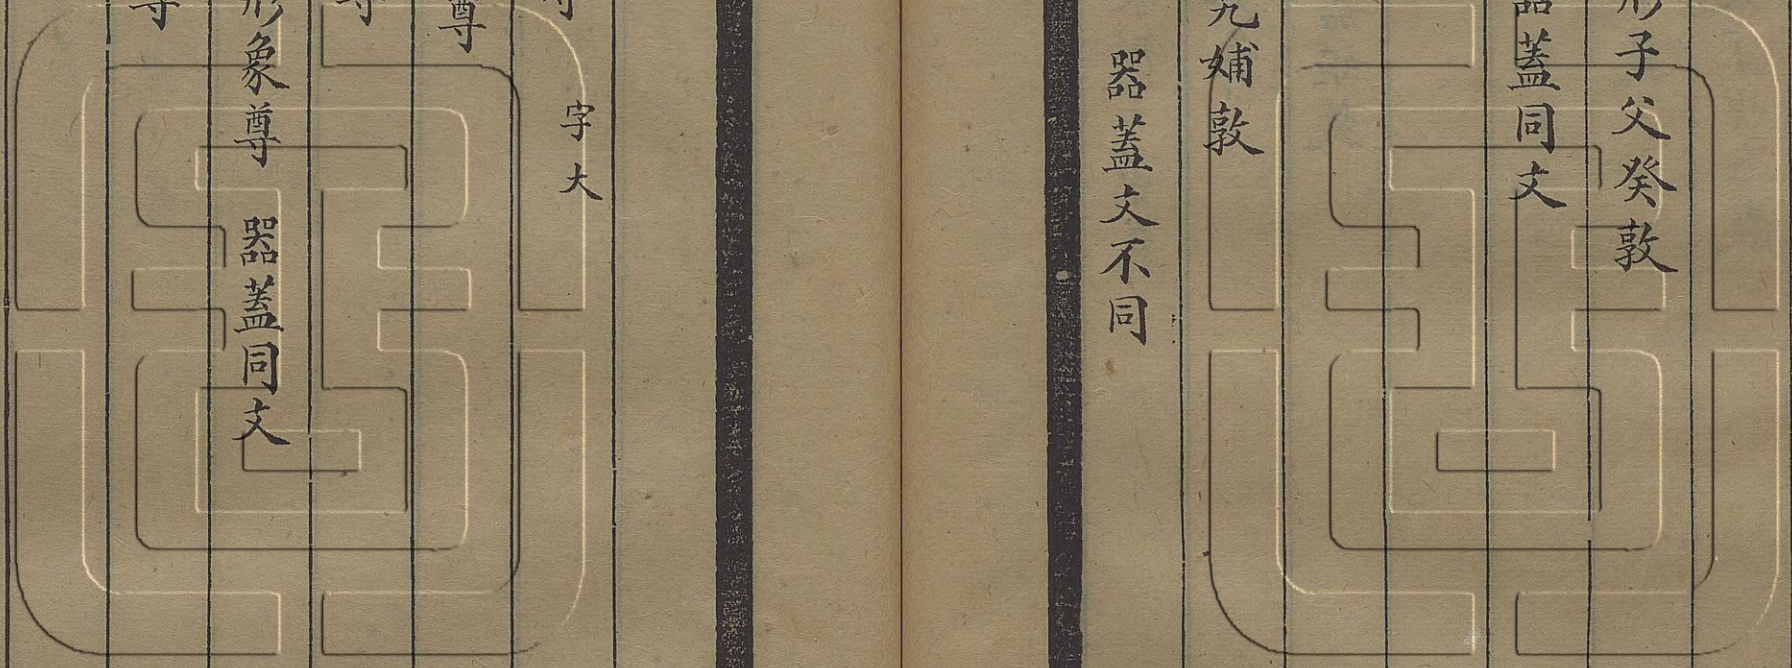 形子父癸敦
器蓋同文
九㛐敦
器蓋文不同
字大
尊
尊
形象尊　器蓋同文
尊